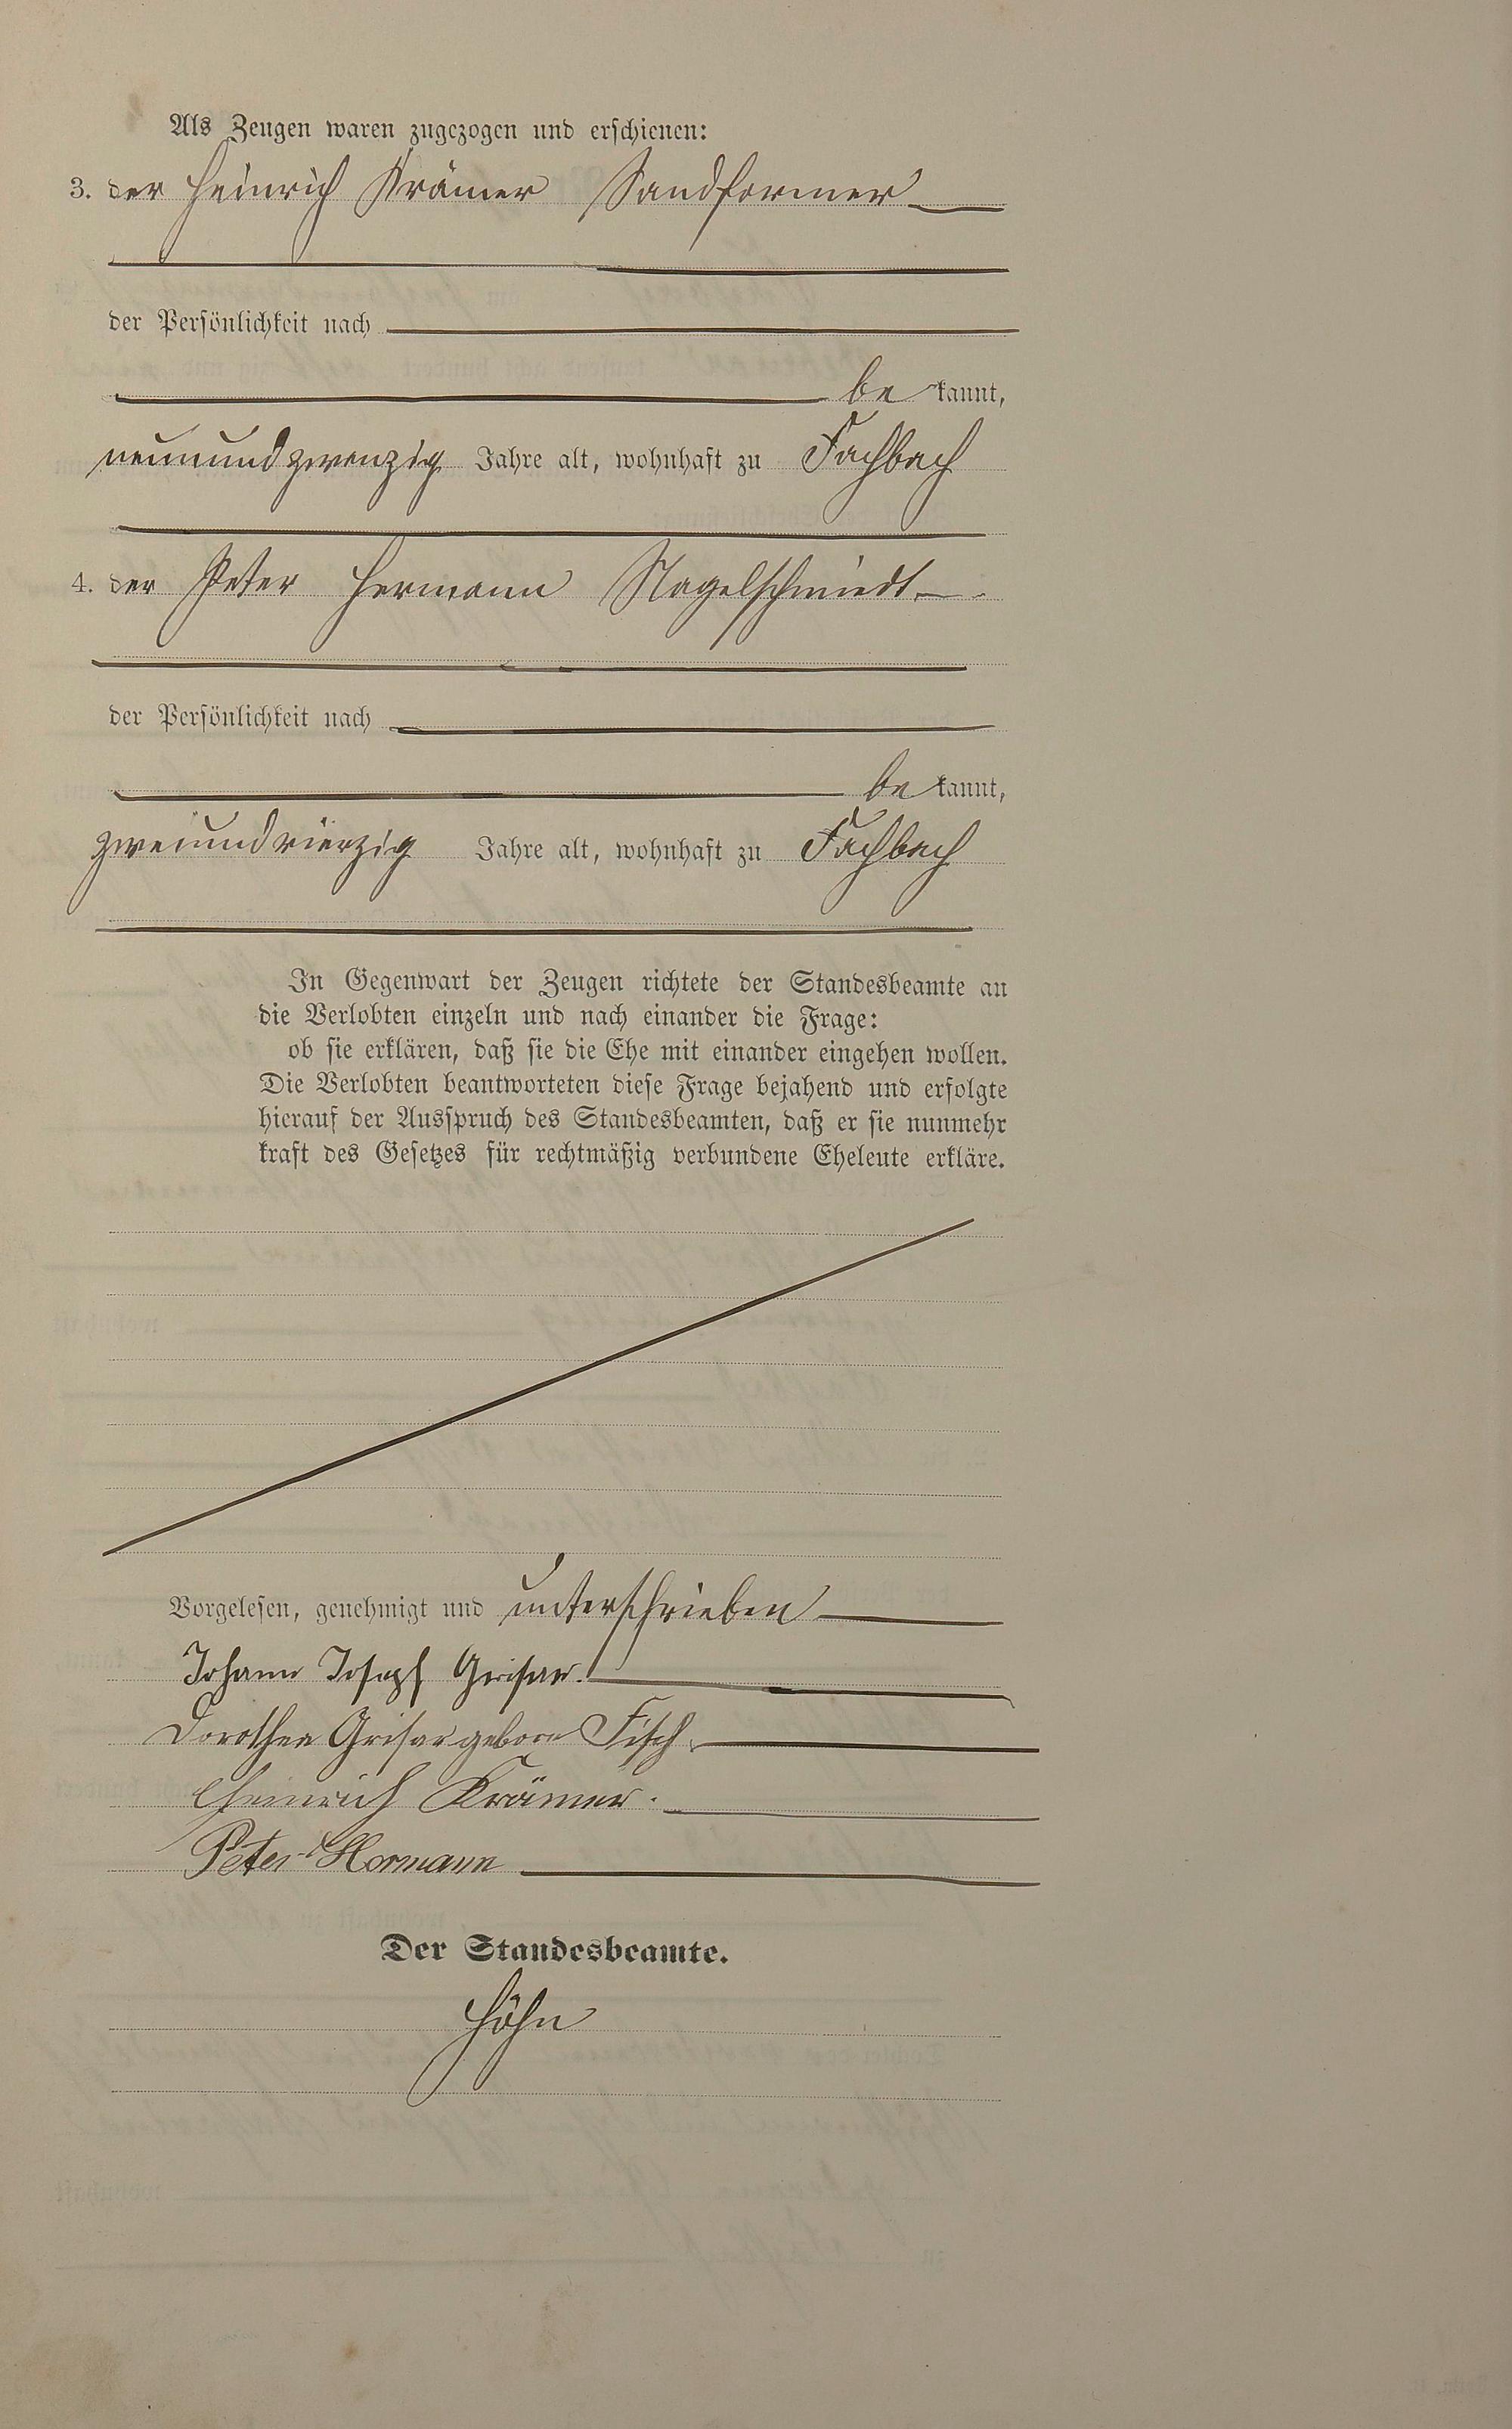 Als Zeugen waren zugezogen und erschienen:
3. der Heinrich Krämer Sandformer
der Persönlichkeit nach
be kannt,
neunundzwanzig Jahre alt, wohnhaft zu Fachbach
4. der Peter Hermann Nagelschmiedt
der Persönlichkeit nach
be kannt,
zweiundvierzig Jahre alt, wohnhaft zu Fachbach
In Gegenwart der Zeugen richtete der Standesbeamte an
die Verlobten einzeln und nach einander die Frage:
ob sie erklären, daß sie die Ehe mit einander eingehen wollen.
Die Verlobten beantworteten diese Frage bejahend und erfolgte
hierauf der Ausspruch des Standesbeamten, daß er sie nunmehr
kraft des Gesetzes für rechtmäßig verbundene Eheleute erkläre.
Vorgelesen, genehmigt und unterschrieben
Johann Joseph Grisar.
Dorothea Grisar geborn Fisch
Heinrich Krämer.
Peter Hermann
Der Standesbeamte.
Höhn